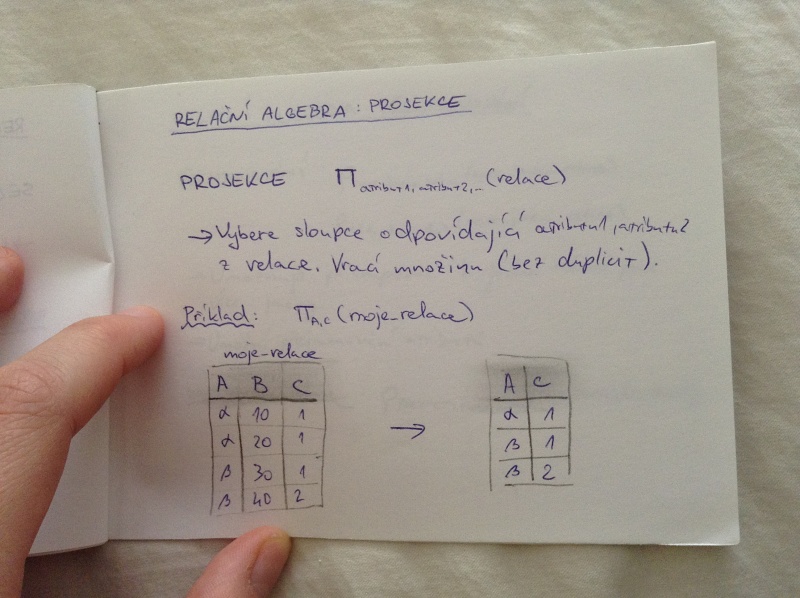 RELAČNÍ ALGEBRA : PROJEKCE
PROJEKCE Π atribut1, atribut2,... (relace)
→ Vybere sloupce odpovídající atributu1, atributu2
z relace. Vrací množinu (bez duplicit).
Příklad: Π A,C (moje_relace)
moje_relace
A B C
α 10 1
α 20 1
β 30 1
β 40 2
→
A C
α 1
β 1
β 2